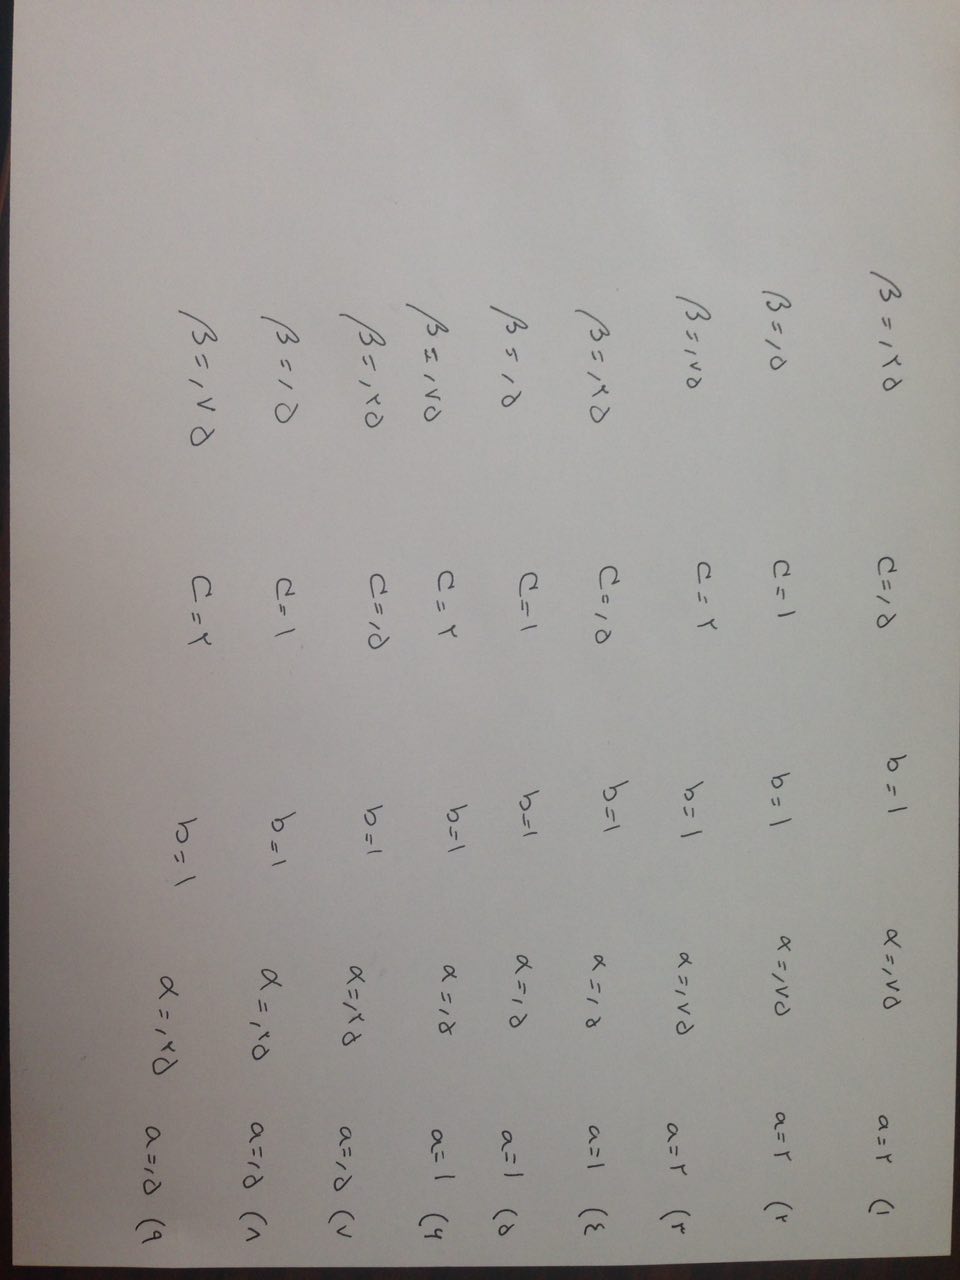 ۱) a=۲ α=,۷۵ b=۱ c=,۵ β=,۲۵
۲) a=۲ α=,۷۵ b=۱ c=۱ β=,۵
۳) a=۲ α=,۷۵ b=۱ c=۲ β=,۷۵
٤) a=۱ α=,۵ b=۱ c=,۵ β=,۲۵
۵) a=۱ α=,۵ b=۱ c=۱ β=,۵
۶) a=۱ α=,۵ b=۱ c=۲ β=,۷۵
۷) a=,۵ α=,۲۵ b=۱ c=,۵ β=,۲۵
۸) a=,۵ α=,۲۵ b=۱ c=۱ β=,۵
۹) a=,۵ α=,۲۵ b=۱ c=۲ β=,۷۵